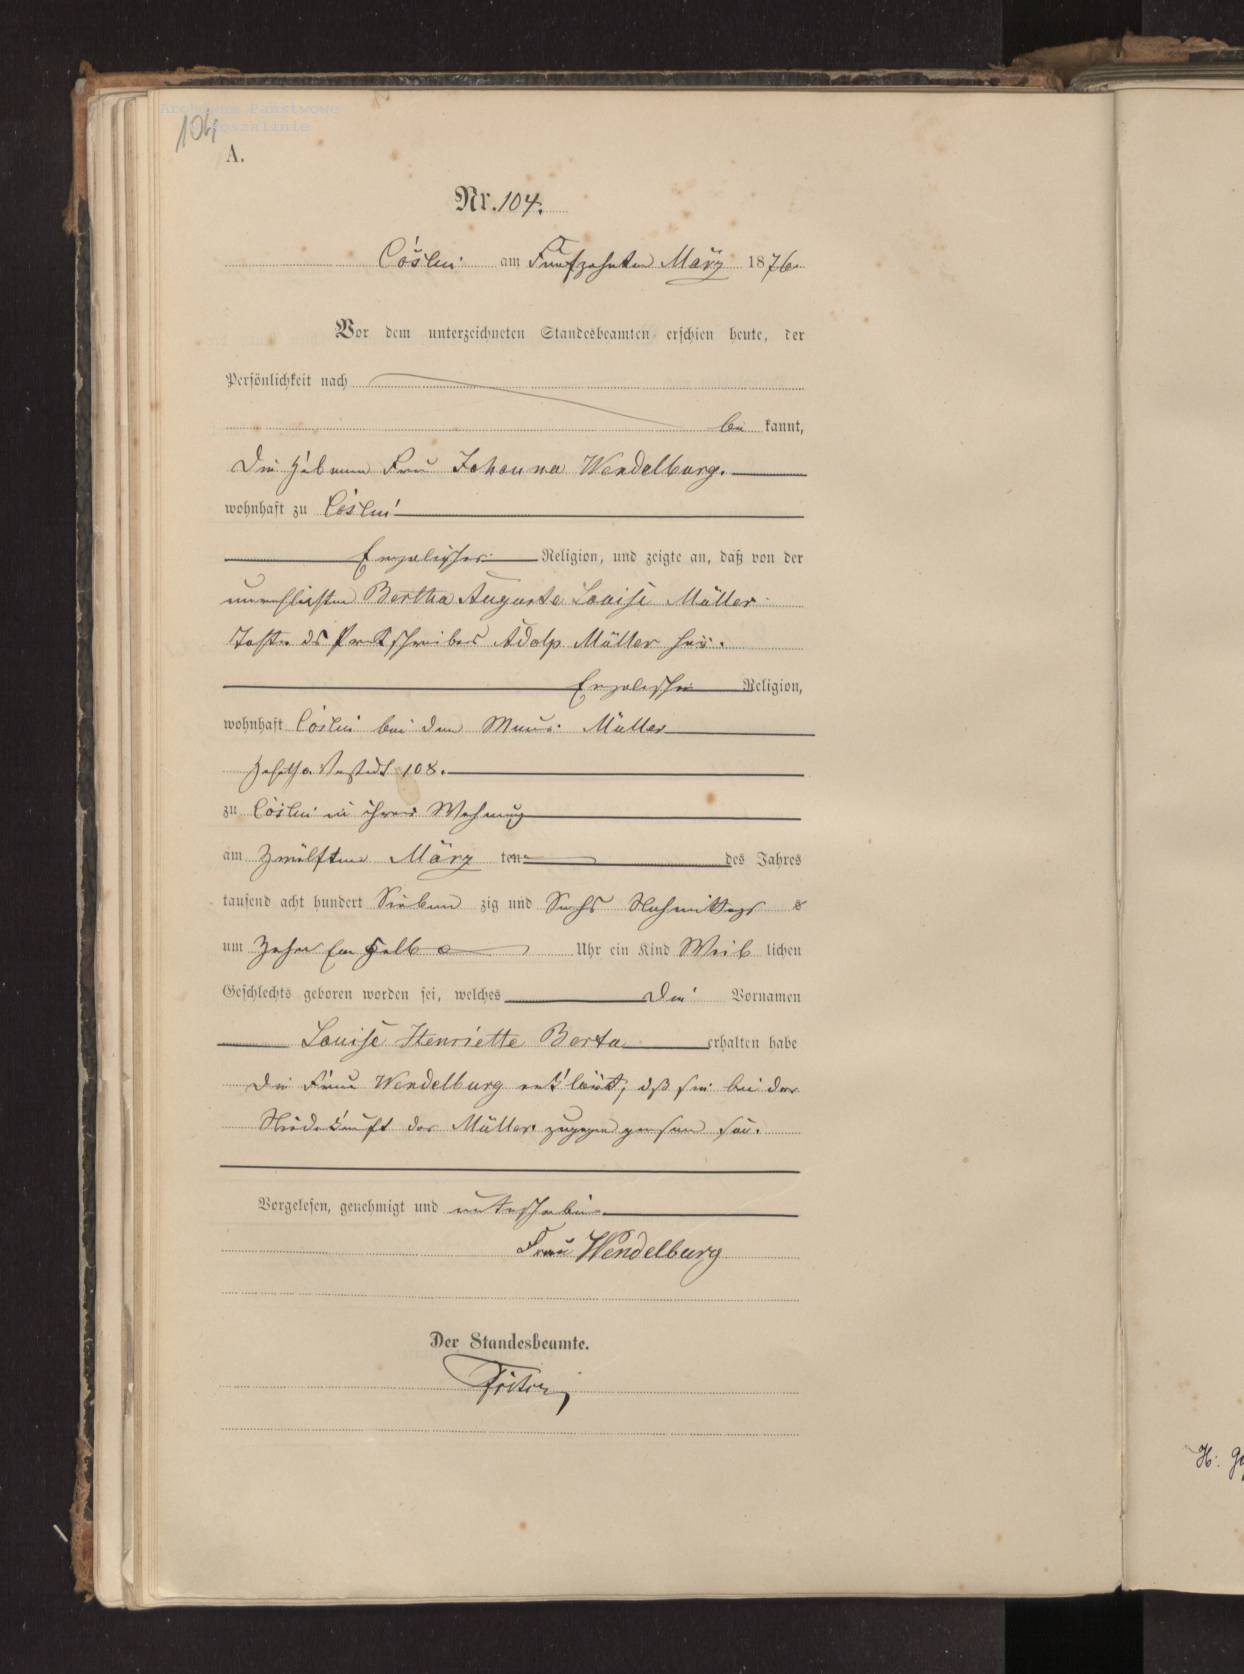 Archiwum Państwowe
Koszalinie
104
A.
Nr. 104.
Cöslin am Fünfzehnten März 1876.
Vor dem unterzeichneten Standesbeamten erschien heute, der
Persönlichkeit nach
be kannt,
Die Hebamme Frau Johanna Wendelburg.
wohnhaft zu Cöslin
Evangelischer Religion, und zeigte an, daß von der
unverehelichten Bertha Auguste Louise Müller
Tochter des Adolp Müller hier.
Evangelischer Religion,
wohnhaft Cöslin bei dem Maurer Müller
Vorstadt 108.
zu Cöslin in ihrer Wohnung
am Zwölften März ten des Jahres
tausend acht hundert Sieben zig und Sechs Nachmittags s
um Zehn Ein halb Uhr ein Kind Weib lichen
Geschlechts geboren worden sei, welches die Vornamen
Louise Henriette Berta erhalten habe
Die Frau Wendelburg erklärt, daß sie bei der
Niederkunft der Müller zugegen gewesen sei.
Vorgelesen, genehmigt und unterschrieben
Frau Wendelburg
Der Standesbeamte.
H.